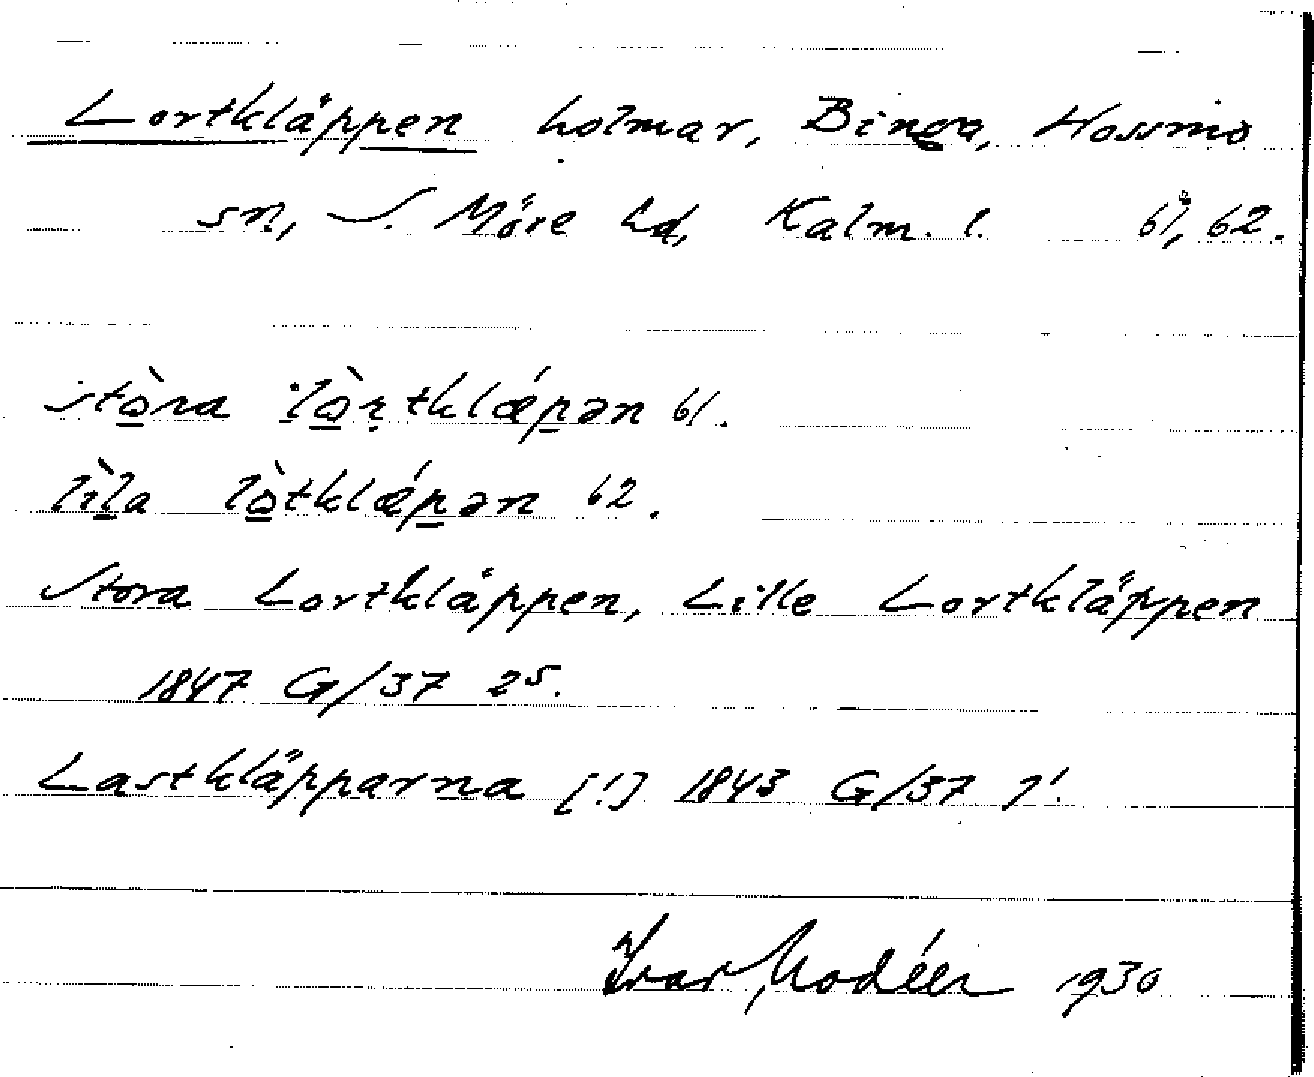 Lortkläppen holmar, Binga, Hossmo
sn, S. Möre hd, Kalm. l. 61, 62.
stòra lòrtklǽpən 61.
lìla lòtklǽpən 62.
Stora Lortkläppen, Lille Lortkläppen
1847 G/37 25.
Lastkläpparna [!] 1843 G/37
Ivar Modéer 1930